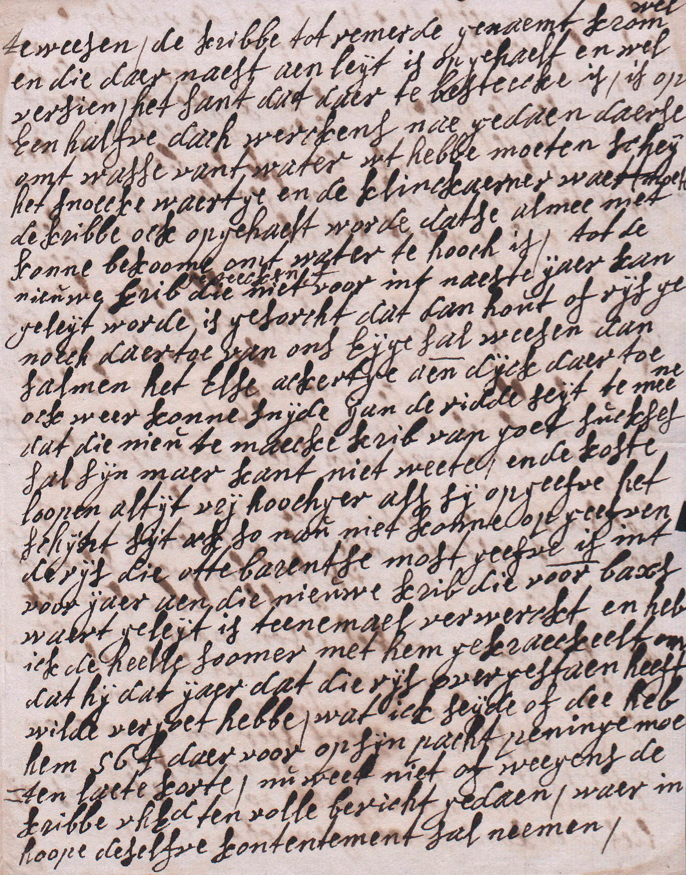 wel
te weesen / de kribbe tot remerde genaemt krom
en die daer naest aen leyt is opgehaelt en wel
versien / het sant dat daer te bestecke is / is op
Een halfve dach werckens nae gedaen daerse
omt wasse vant water wt hebbe moeten schey
het snoecke waertge en de klinckaerner waert moet
de kribbe ock opgehaelt worde datse almee niet
konne bekoome omt water te hooch is / tot de
nieuwe krib die niet voor int naeste yaer kan
geleyt worde is gesorcht dat dan hout of rys ge
noech daertoe van ons Eyge sal weesen dan
salmen het Else ackertge aen dyck daer toe
ock weer konne snyde Jan de ridde seyt te mee ne
dat die nieu te maecke krib van goet suckses
sal syn maer kant niet weete / ende koste
loopen altyt vry hoochger als sy opgeefve het
schynt syt ock so nau niet konne opgeefven
de rys die otte barentse most geefve is int
voor yaer aen die nieuwe krib die voor baxs
waert geleyt is teenemael verwerckt en heb
ick de heelle soomer met hem gekraeckeelt om
dat hy dat yaer dat die rys overgestaen heeft
wilde vergoet hebbe / wat ick seyde of dee heb
hem 56 f daer voor op syn pacht peninge moe
ten laete korte / nu weet niet of weegens de
kribbe uhEd ten volle bericht gedaen / waer in
hoope deselfve kontentement sal neemen /